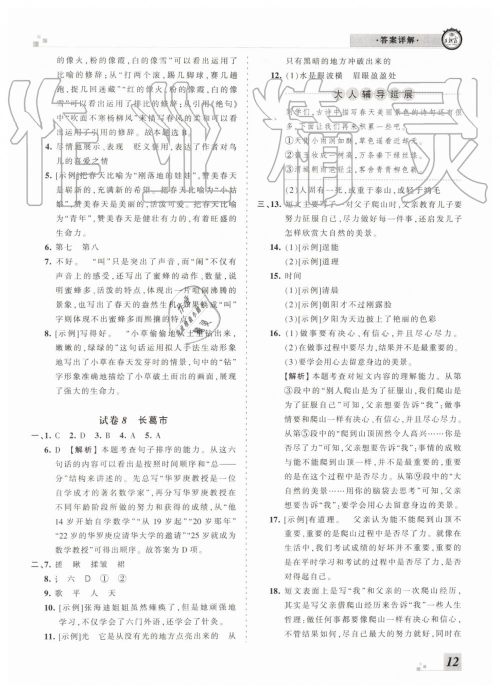 ·答案详解·
的像火，粉的像霞，白的像雪”可以看出运用了
比喻的修辞；从“打两个滚，踢几脚球，赛几趟
跑，捉几回迷藏”“红的像火，粉的像霞，白的像
雪”可以看出运用了排比的修辞；从引用《绝句》
中“吹面不寒杨柳风”来描写春风的柔和可以看
出运用了引用的修辞。故选D。
4. 尽情地展示、表现　贬义褒用，表达作者对鸟
儿的喜爱之情
5. [示例]把春天比喻为“刚落地的娃娃”，赞美春天是
崭新的，充满新的希望；把春天比喻为“小姑
娘”，赞美春天是美丽的、有活力的；把春天比喻
为“青年”，赞美春天是健壮有力的，有着旺盛的
生命力。
6. 第七　第八
7. 不好。“叫”只是写出有声音，而“闹”不仅有
声音上的感受，还写出了蜜蜂的动作、数量，说
明蜜蜂多、活泼的特点，体现出一片喧闹沸腾的
景象，也写出了春天的盎然生机，效果极佳，“叫”
字则体现不出蜜蜂多而热情的特点。
8. [示例]写得好。“小草偷偷地从土里钻出来，
嫩嫩的，绿绿的”这句话运用拟人手法生动形象
地写出了小草在春天发芽时的情景，句中的“钻”
字形象准确地描绘了小草破土而出的画面，表现
了强大的生命力。
试卷8　长葛市
一、1. C　2. D　3. B　4. A　5. A
6. D　【解析】本题考查句子排序的能力。从这六
句话的内容可以看出是按照时间顺序和“总——
分”结构来讲述的。先总写“华罗庚教授是一位
自学成才的著名数学家”，再分写华罗庚教授在
不同年龄阶段所做的努力和获得的成绩，从“他
14岁开始自学数学”“从19岁起”“20岁那年”
“22岁的华罗庚应清华大学的邀请”“25岁就成为
数学教授”可得出顺序。故答案为D项。
二、7. 搓　瞅　揉皱　裙
8. 氵　六　D　①　②
9. 歌　平　人　天
10. [示例]张海迪姐姐虽然瘫痪了，但是她顽强地
学习，成功地为村里的人做针灸。
11. [示例]光　它是从没有光的地方点亮出来的　从
只有黑暗的地方冲破出来的
12. (1)水是眼波横　眉眼盈盈处
大人辅导延展
同学们，古诗中描写春天美丽景色的诗句还有很
多，下面让我们再来积累一些吧！
①天街小雨润如酥，草色遥看近却无。
②碧玉妆成一树高，万条垂下绿丝绦。
③渭城朝雨浥轻尘，客舍青青柳色新。
(2)人固有一死，或重于泰山，或轻于鸿毛
三、13. [示例]短文写了父女爬山时，父亲教育儿子要
努力征服自己，尽力做好每一件事，还启发儿子怎
样欣赏大自然的美景。
14. (1)[示例]逞能
(2)[示例]道理
15. 时间
(1)[示例]清晨
(2)[示例]朝阳才不过刚露脸
(3)[示例]夕阳为天边披上了艳丽的色彩
16. (1)做事要有决心、有信心，并且尽心尽力。
(2)做事情要尽心尽力，结果并不是最重要的。
(3)要学会用心去留意身边的美景。
【解析】本题考查对短文内容的理解能力。从第
③段中的“别人爬山是为了征服山，我们爬山是
为了征服自己”可知，父亲想要告诉“我”：做事
情要和爬山一样有决心、有信心，并且尽心尽力。
从第⑤段中的“爬上山顶固然令人高兴……你是
否尽了力”可知，父亲想要告诉“我”：事情的成败
与能不能爬到山顶一样，并不是最重要的，重要
的是在过程中是否尽了力。从第⑨段中的“大
自然的美景……用你的脑袋去思考”可知，父亲
想要告诉“我”：要学会用心去留意身边的美景。
17. [示例]有道理。　父亲认为能不能爬到山顶不重
要，重要的是爬山过程中是否尽力了。就像在生
活中，我们考试成绩的好坏并不重要，重要的是
在平时学习和考试的过程中是否尽力了，是否无
悔自己。
18. 短文表面上是写父亲和“我”的一次爬山经历，
其实写父亲借爬山经历来告诉“我”一些人生
哲理：做事要像爬山一样有决心和信心，不管
结果如何，尽最大的努力就好；要学会享受在
12